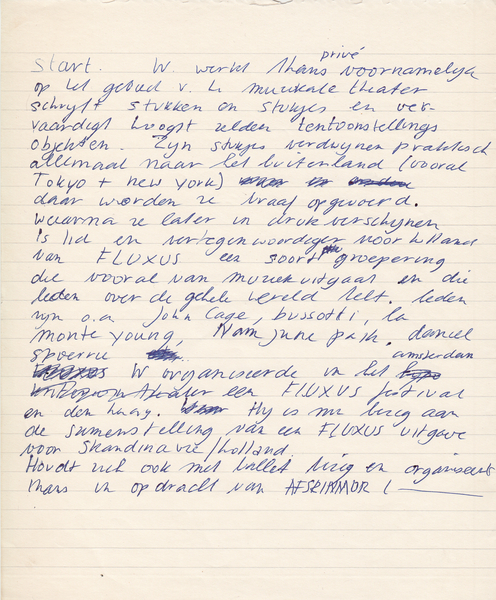 privé
Start. W. werkt thans voornamelijk
op het gebied v. h muzikale theater
schrijft stukken en stukjes en ver-
vaardigt hoogst zelden tentoonstellings
objekten. Zijn stukjes verdwijnen praktisch
allemaal naar het buitenland (vooral
Tokyo + new york)
daar worden ze braaf opgevoerd.
waarna ze later in druk verschijnen
Is lid en vertegenwoordiger voor holland
van FLUXUS een soort groepering
die vooral van muziek uitgaat en die
leden over de gehele wereld telt. leden
zijn o.a. John Cage, bussotti, la
monte young, Nam june paik, daniel
spoerrie
W organiseerde in het amsterdam
een FLUXUS festival
en den haag. Hij is nu bezig aan
de samenstelling van een FLUXUS uitgave
voor Skandinavie/holland.
Houdt zich ook met ballet bezig en organiseert
thans in opdracht van (